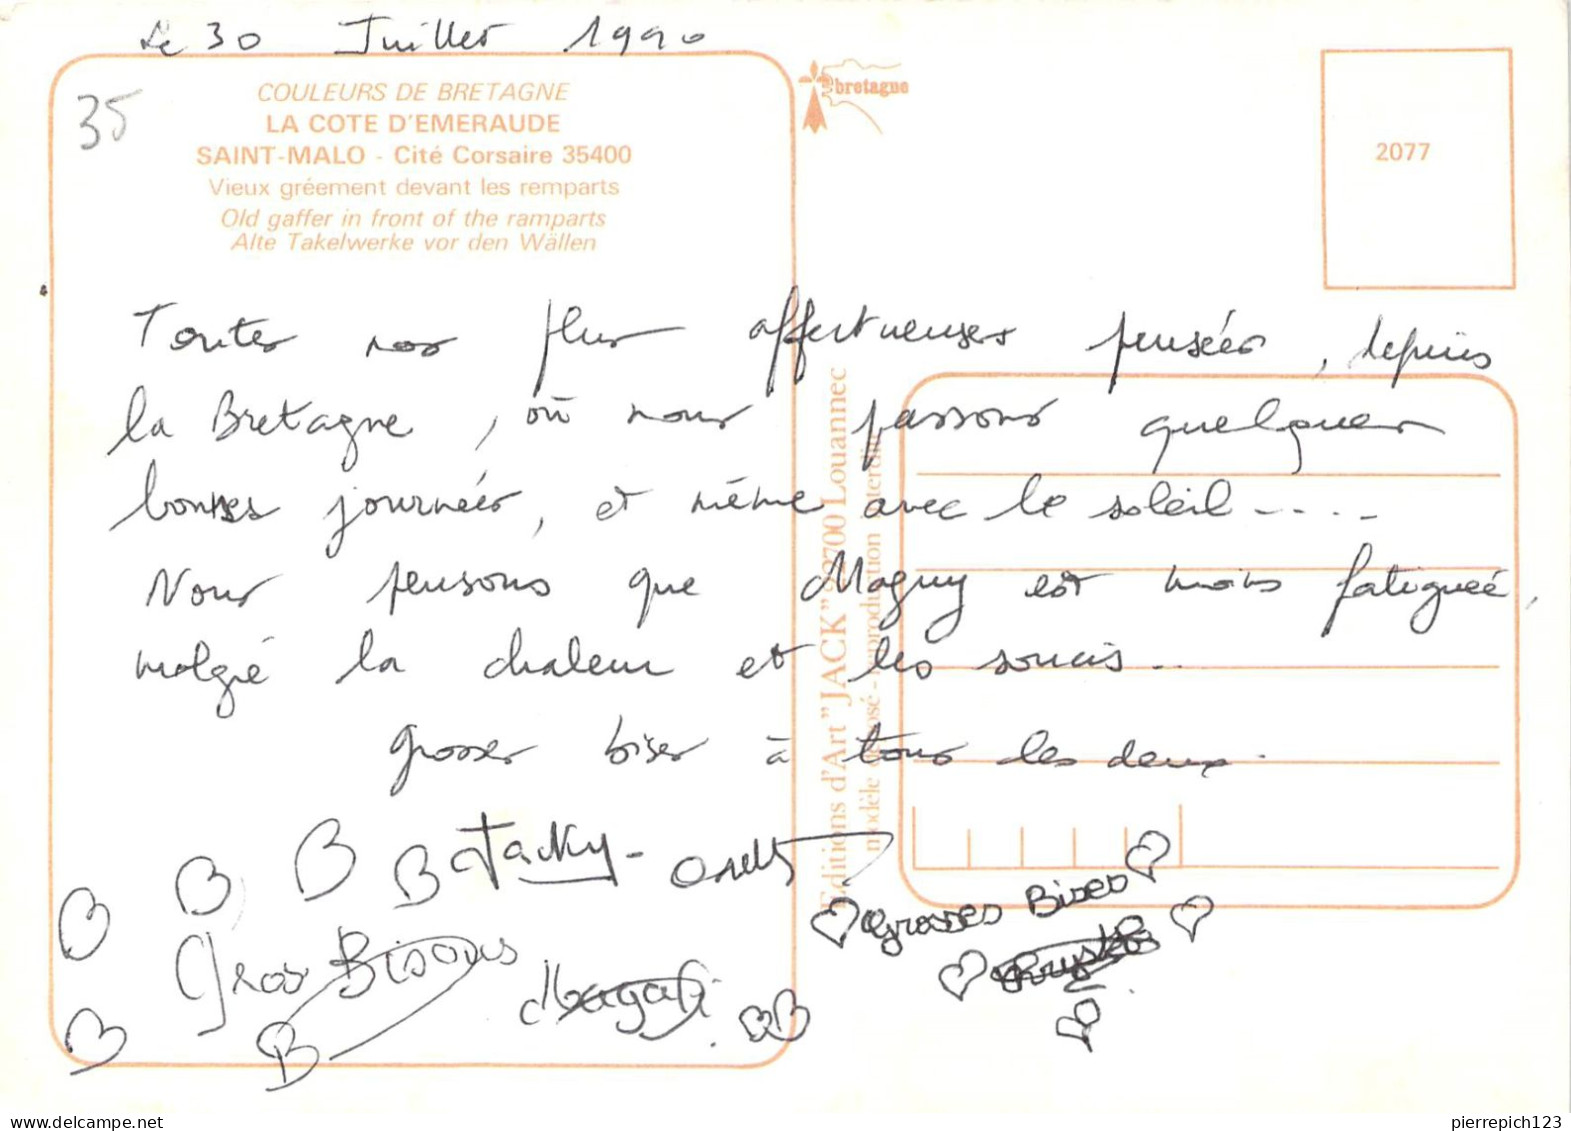 Le 30 Juillet 1990
35
COULEURS DE BRETAGNE
LA COTE D'EMERAUDE
SAINT-MALO - Cité Corsaire 35400
Vieux gréement devant les remparts
Old gaffer in front of the ramparts
Alte Takelwerke vor den Wällen
bretagne
2077
Toutes nos plus affectueuses pensées, depuis
la Bretagne, où nous passons quelques
bonnes journées, et même avec le soleil.....
Nous pensons que Maguy est moins fatiguée,
malgré la chaleur et les soucis...
grosses bises à tous les deux.
Jacky -
Grosses Bises
Gros Bisous
Magali
Editions d'Art "JACK" 22700 Louannec
modèle déposé - reproduction interdite
pierrepich123